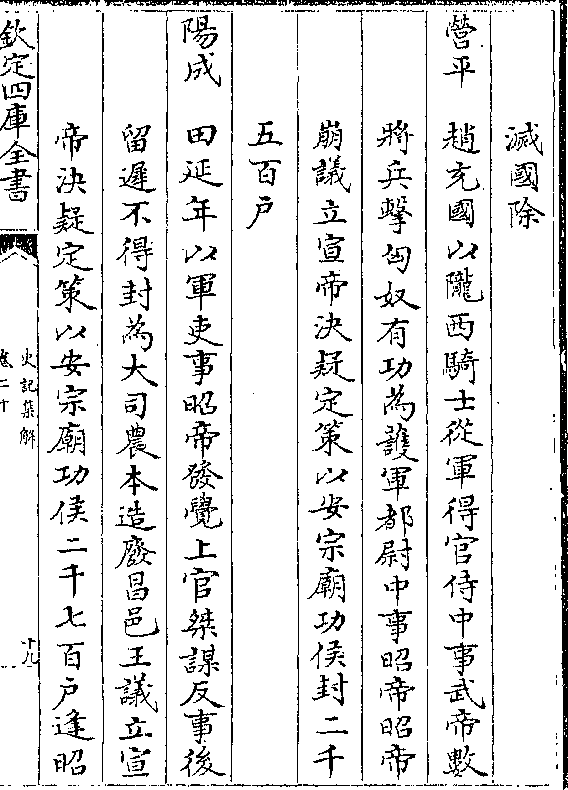 滅國除
營平　趙充國以隴西騎士從軍得官侍中事武帝數
將兵擊匈奴有功為護軍都尉中事昭帝昭帝
崩議立宣帝決疑定策以安宗廟功侯封二千
五百户
陽成　田延年以軍吏事昭帝發覺上官桀謀反事後
留遲不得封為大司農本造廢昌邑王議立宣
帝決疑定策以安宗廟功侯二千七百户逢昭
欽定四庫全書
史記集解
卷二十
十九